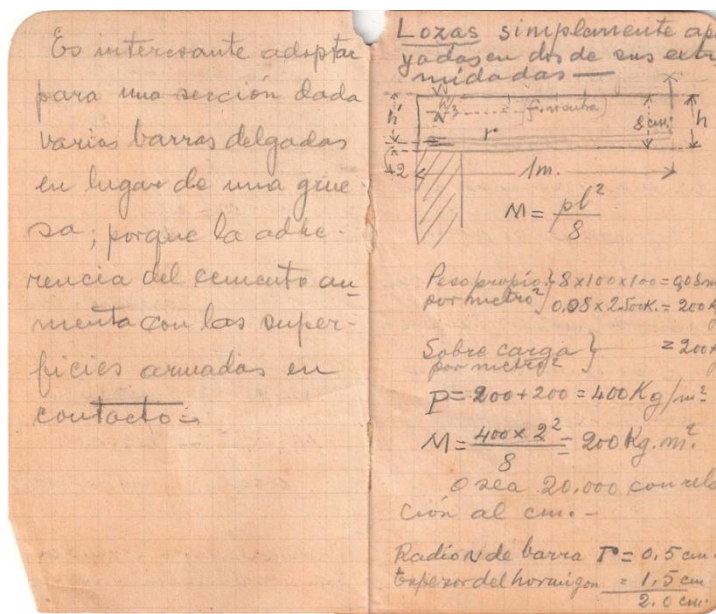 Es interesante adoptar
para una sección dada
varias barras delgadas
en lugar de una grue-
sa; porque la adhe-
rencia del cemento au-
menta con las super-
ficies armadas en
contacto=
Lozas simplemente apo
yadas en dos de sus extre
midadas—
h'
N
r
8 cm.
h
2
1m.
M = pl²/8
Peso propio } 8x100x100 = 0,08m
por metro² } 0.08 x 2.500K. = 200K
Sobre carga } = 200K
por metro²
P = 200 + 200 = 400 Kg/m²
M = 400 x 2²/8 = 200 Kg. m².
O sea 20.000 con rela
ción al cm. -
Radio de barra r = 0,5 cm.
Espesor del hormigon = 1,5 cm
2.0 cm.